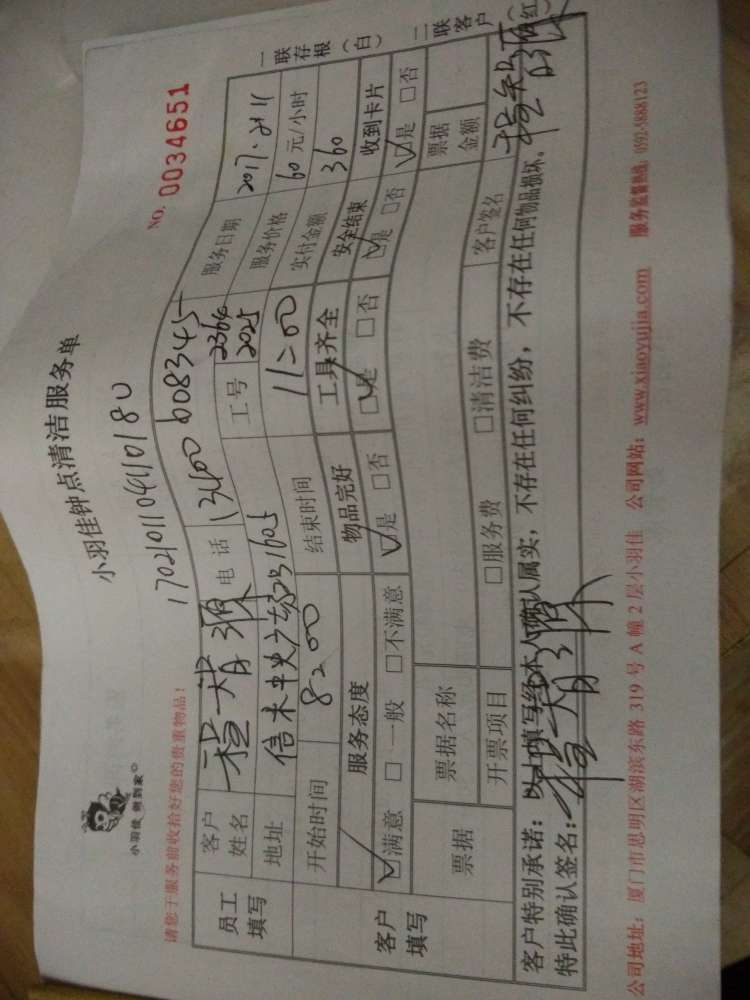 小羽佳 侬到家
小羽佳钟点清洁服务单
NO. 0034651
1702101104110180
请您于服务前收拾好您的贵重物品!
员工填写
客户姓名 电话 13400608345 服务日期 2017.2.11
地址 信禾中央广场 1605 工号 2364 2025 服务价格 60 元/小时
开始时间 8:00 结束时间 11:00 实付金额 360
客户填写
服务态度 物品完好 工具齐全 安全结束 收到卡片
☑满意 □一般 □不满意 ☑是 □否 ☑是 □否 ☑是 □否 ☑是 □否
票据 票据名称 票据金额
开票项目 □服务费 □清洁费 客户签名
客户特别承诺:以上填写经本人确认属实,不存在任何纠纷,不存在任何物品损坏。
特此确认签名:
公司地址:厦门市思明区湖滨东路 319 号 A 幢 2 层小羽佳 公司网站:www.xiaoyujia.com 服务监督热线:0592-5888123
一联存根(白) 二联客户(红)